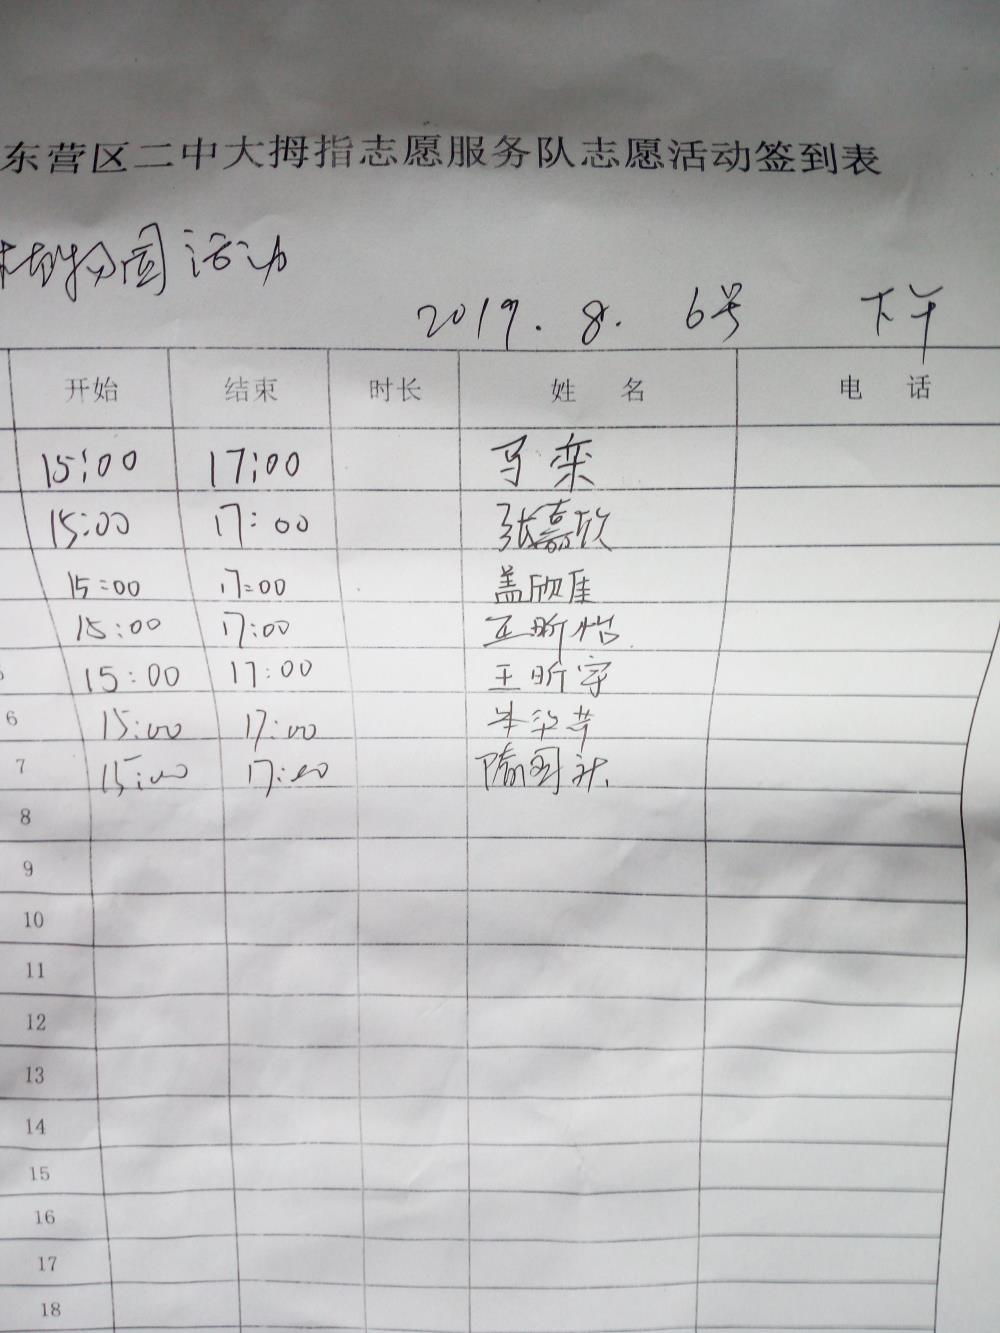 东营区二中大拇指志愿服务队志愿活动签到表
植物园活动
2019.8. 6号 下午
开始 结束 时长 姓 名 电 话
15:00 17:00 马栾
15:00 17:00 张嘉欣
15:00 17:00 盖欣佳
15:00 17:00 王昕怡
15:00 17:00 王昕宇
6 15:00 17:00
7 15:00 17:00
8
9
10
11
12
13
14
15
16
17
18